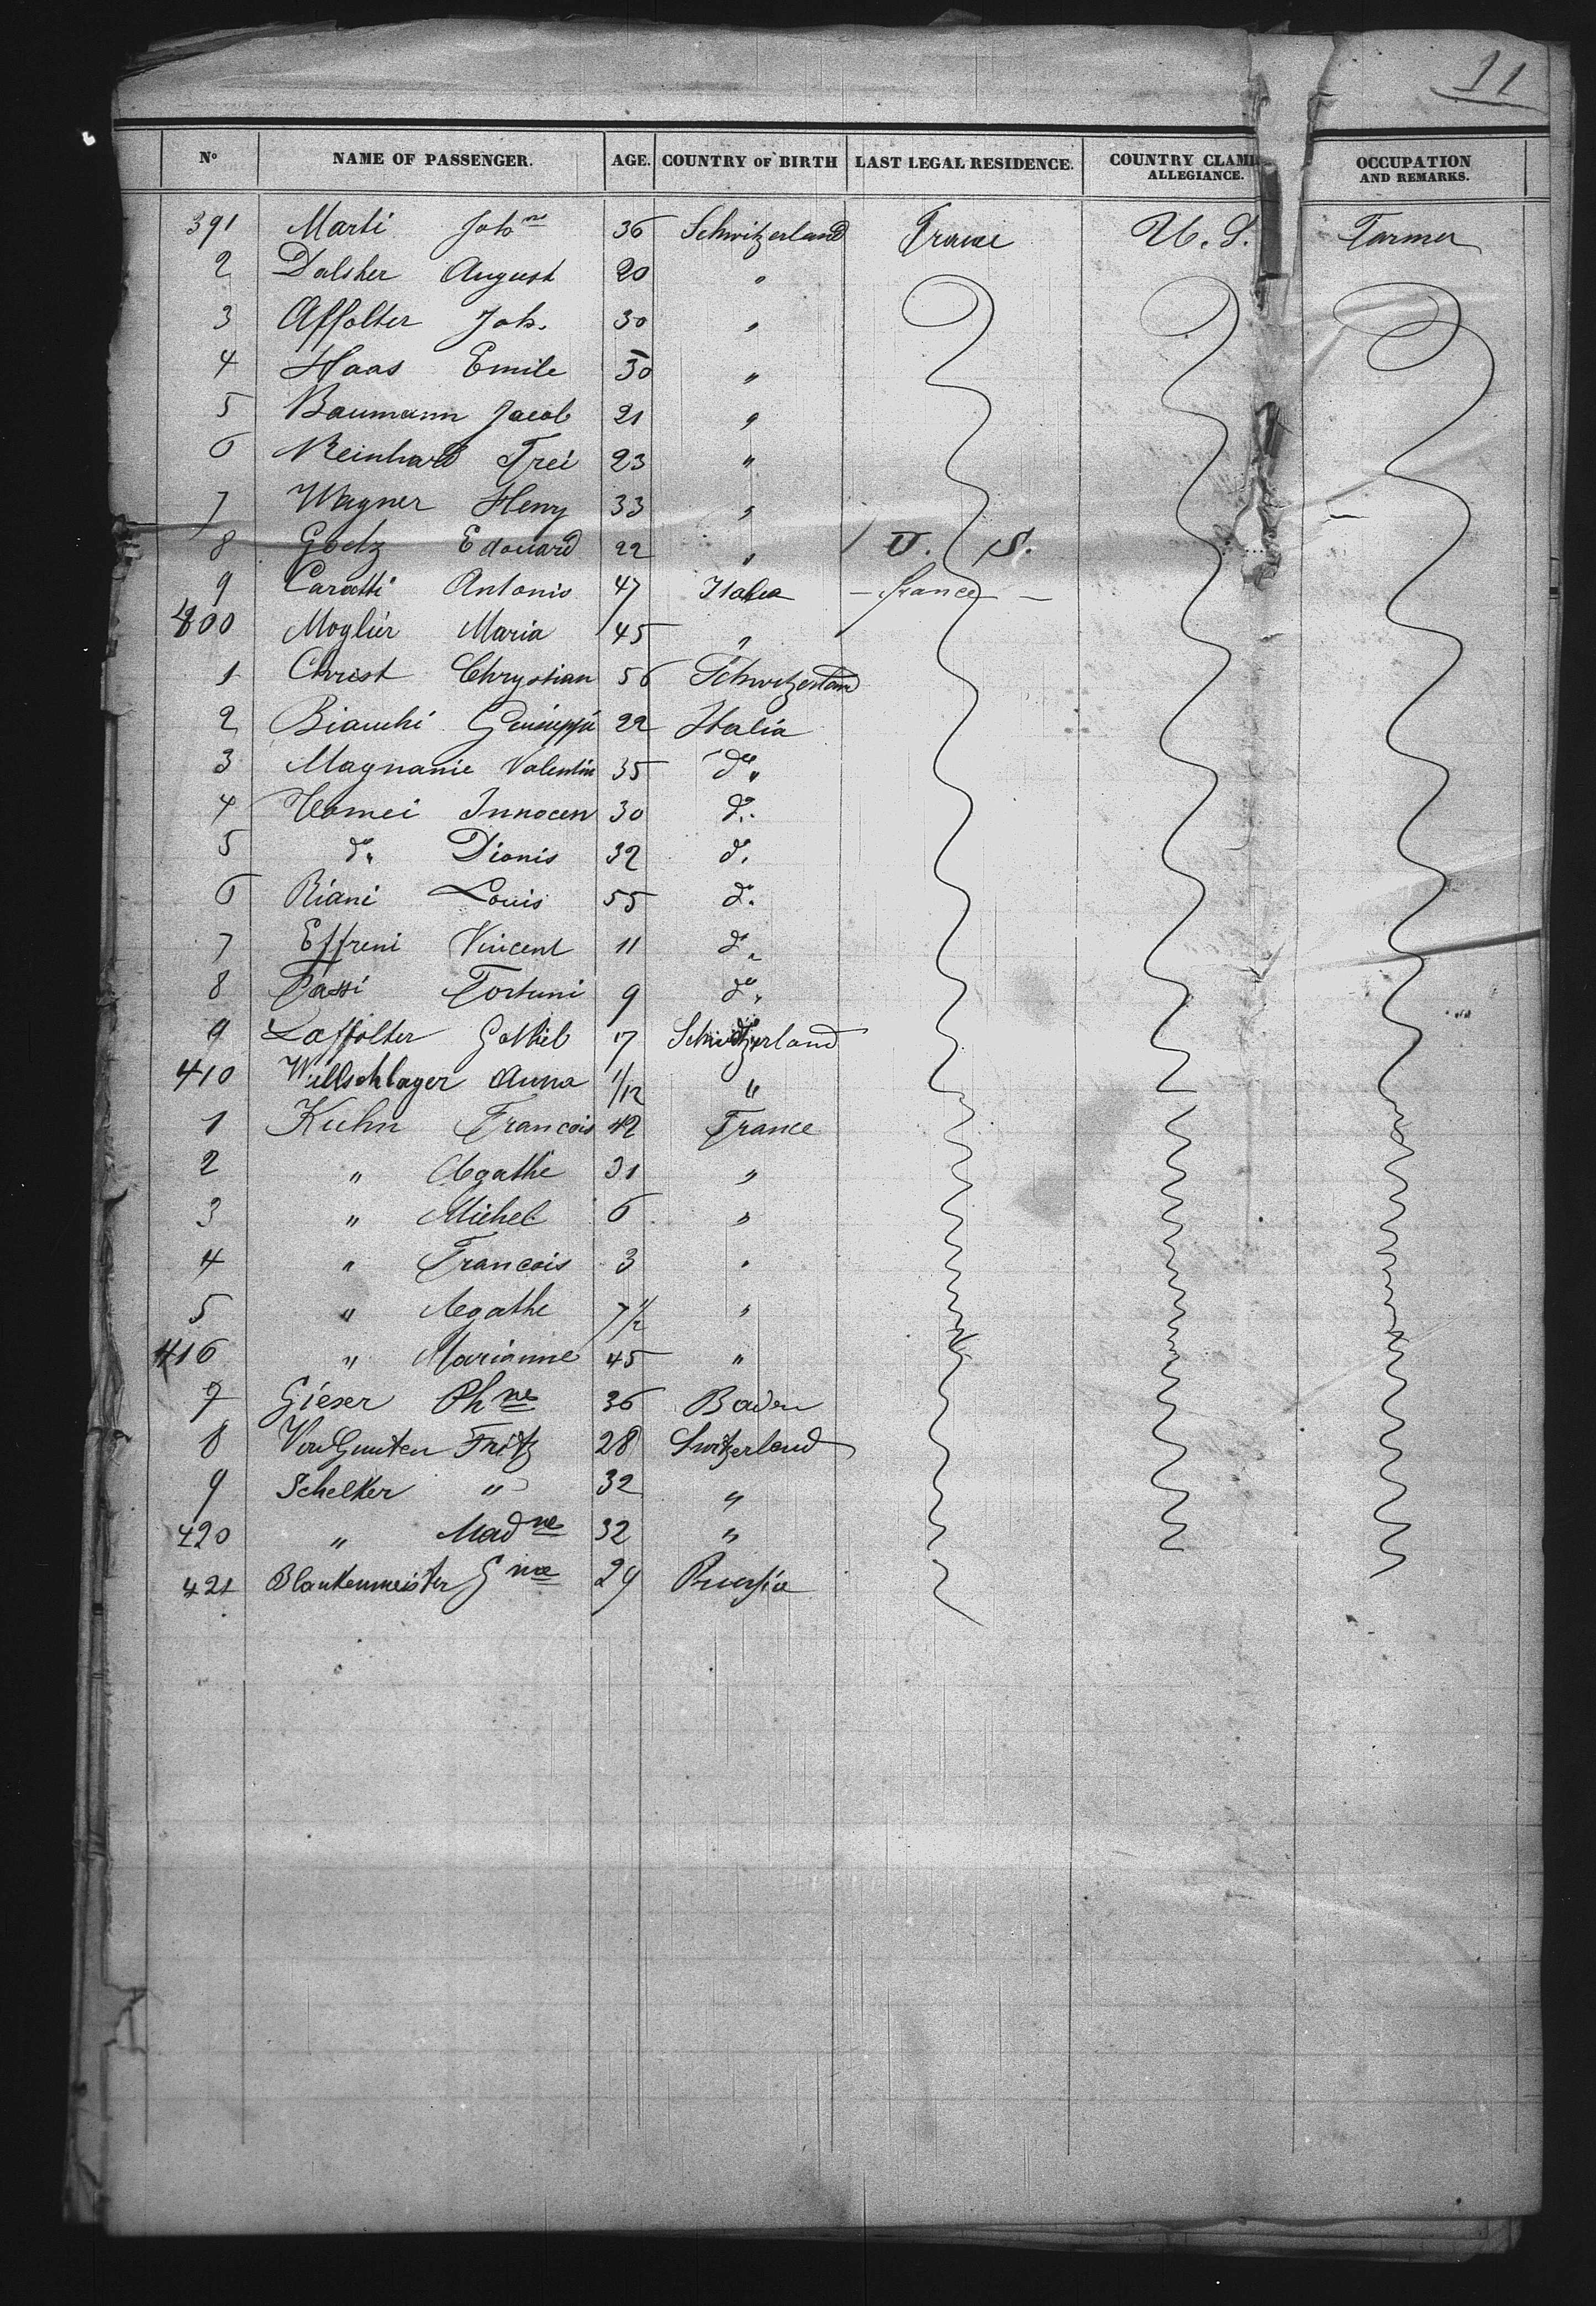 11
Nº NAME OF PASSENGER. AGE. COUNTRY OF BIRTH LAST LEGAL RESIDENCE. COUNTRY CLAMI ALLEGIANCE. OCCUPATION AND REMARKS.
391 Marti Joh ne 36 Schwitzerland France U. S. Farmer
2 Dalsher August 20 "
3 Affolter Joh. 30 "
4 Haas Emile 30 "
5 Baumann Jacob 21 "
6 Reinhard Frei 23 "
7 Wagner Heny 33 "
8 Godz Edouard 22 " / U. S.
9 Caratti Antonio 47 Italia — france —
400 Moglier Maria 45 "
1 Christ Chrystian 56 Schwitzerland
2 Bianchi Geuseppi 22 Italia
3 Magnanie Valentin 35 do "
4 Innocen 30 do
5 do " Dionis 32 do
6 Riani Louis 55 do
7 Effreni Vincent 11 do "
8 Passi Fortuni 9 do "
9 Laffolter Gottlieb 17 Schwitzerland
410 Willschlager Anna 1/12 "
1 Kuhn Francois 42 France
2 " Agathe 31 "
3 " Michel 6 "
4 " Francois 3 "
5 " Agathe 7 1/2 "
416 " Marianne 45 "
7 Gieser Ph ne 36 Baden
8 Von Gunten Fritz 28 Switzerland
9 Schelker " 32 "
420 " Mad ne 32 "
421 Blankenmeister G ne 29 Prussia